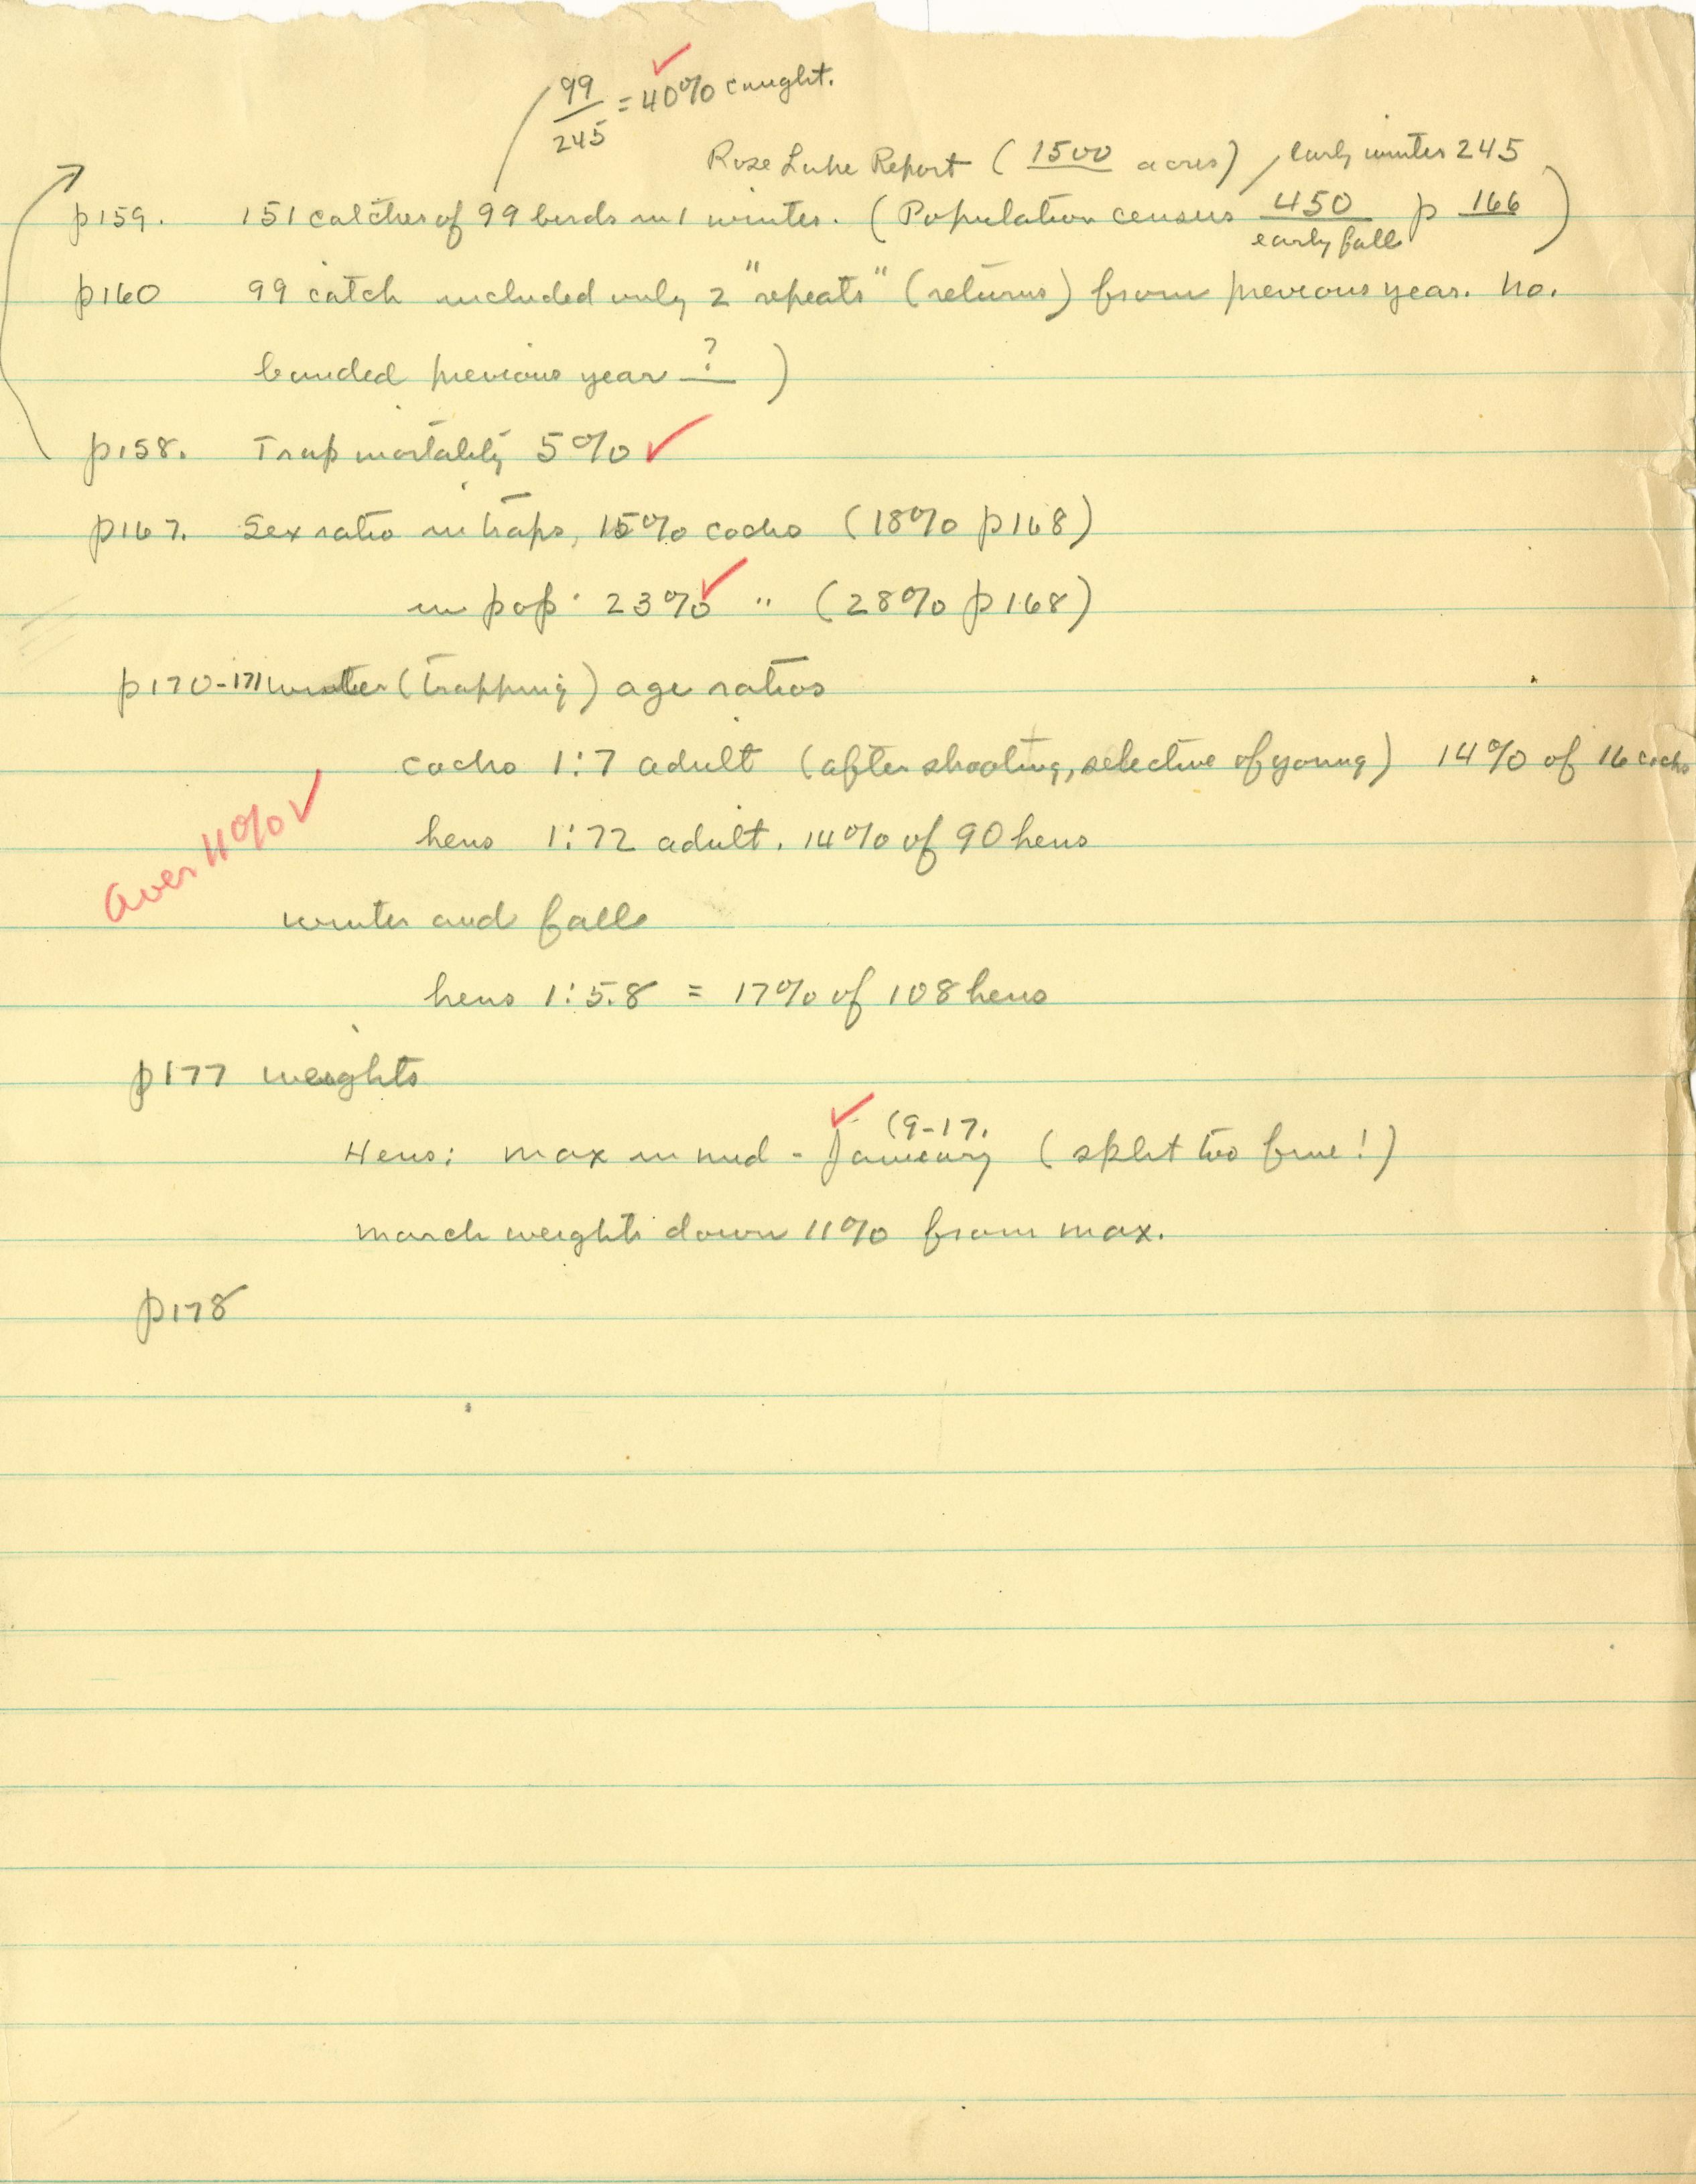 99/245 = 40% caught.
Rose Lake Report (1500 acres) early winter 245
p159. 151 catches of 99 birds in 1 winter. (Population census 450 p 166)
early fall
p160 99 catch included only 2 "repeats" (returns) from previous year. No.
banded previous year ? )
p158. Trap mortality 5%
p167. Sex ratio in traps, 15% cocks (18% p168)
in pop. 23% " (28% p168)
p170-171 winter (trapping) age ratios
cocks 1:7 adult (after shooting, selective of young) 14% of 16 cocks
hens 1:72 adult. 14% of 90 hens
Aver 11%
winter and fall
hens 1:5.8 = 17% of 108 hens
p177 weights
(9-17.
Hens: max in mid-January (split too fine!)
March weights down 11% from max.
p178